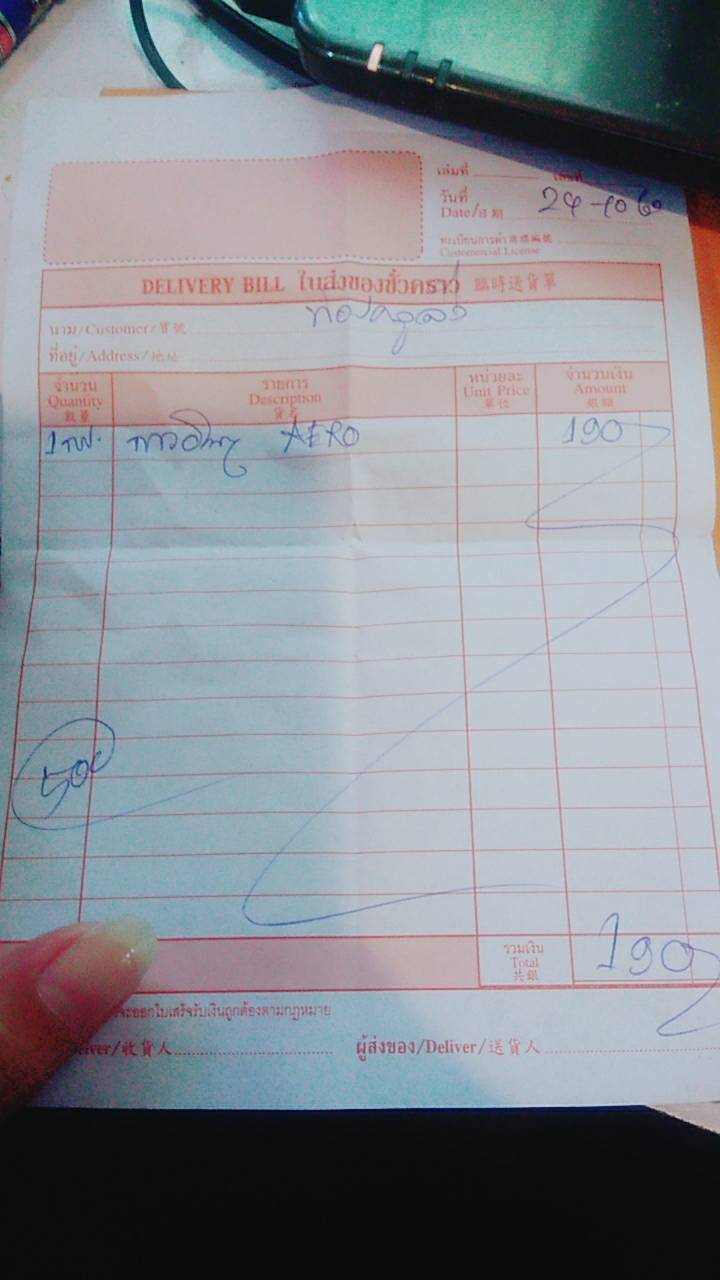 เล่มที่ เลขที่
วันที่
Date/日期 24-10 60
ทะเบียนการค้า 商標編號
Customercial License
DELIVERY BILL ใบส่งของชั่วคราว 臨時送貨單
นาม/Customer/寶號
ที่อยู่/Address/地址
จำนวน Quantity 數量 รายการ Description 貨名 หน่วยละ Unit Price 單位 จำนวนเงิน Amount 銀額
1 AERO 190
500
รวมเงิน Total 共銀 190
จะออกใบเสร็จรับเงินถูกต้องตามกฎหมาย
/收貨人 ผู้ส่งของ/Deliver/送貨人